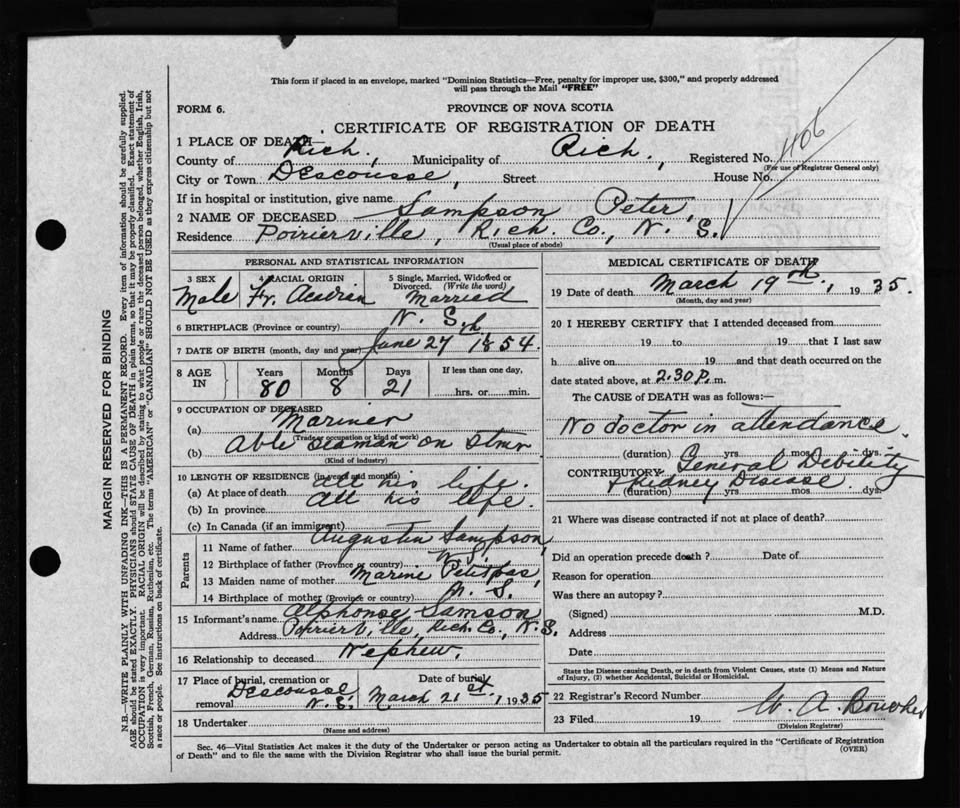 This form if placed in an envelope, marked "Dominion Statistics—Free, penalty for improper use, $300," and properly addressed
will pass through the Mail "FREE"
FORM 6.
PROVINCE OF NOVA SCOTIA
CERTIFICATE OF REGISTRATION OF DEATH
1 PLACE OF DEATH—
County of Rich., Municipality of Rich., Registered No. 1406
(For use of Registrar General only)
City or Town Descousse, Street House No.
If in hospital or institution, give name
2 NAME OF DECEASED Sampson Peter,
Residence Poirierville, Rich. Co., N. S.
(Usual place of abode)
PERSONAL AND STATISTICAL INFORMATION
3 SEX 4 RACIAL ORIGIN 5 Single, Married, Widowed or Divorced. (Write the word)
Male Fr. Acadian Married
6 BIRTHPLACE (Province or country) N. S.
7 DATE OF BIRTH (month, day and year) June 27th 1854.
8 AGE IN Years Months Days If less than one day,
80 8 21 hrs. or min.
9 OCCUPATION OF DECEASED
(a) Mariner
(Trade or occupation or kind of work)
(b) Able seaman on stmr
(Kind of industry)
10 LENGTH OF RESIDENCE (in years and months)
(a) At place of death all his life.
(b) In province all his life.
(c) In Canada (if an immigrant)
Parents
11 Name of father Augustin Sampson,
12 Birthplace of father (Province or country) N. S.
13 Maiden name of mother Marine Petitpas,
14 Birthplace of mother (Province or country) N. S.
15 Informant's name Alphonse Samson
Address Poirierville, Rich. Co., N. S.
16 Relationship to deceased Nephew.
17 Place of burial, cremation or removal Descousse, N. S. Date of burial March 21st, 1935
18 Undertaker
(Name and address)
MEDICAL CERTIFICATE OF DEATH
19 Date of death March 19th, 1935.
(Month, day and year)
20 I HEREBY CERTIFY that I attended deceased from
19 to 19 that I last saw
h alive on 19 and that death occurred on the
date stated above, at 2.30 P. m.
The CAUSE of DEATH was as follows:—
No doctor in attendance.
(duration) yrs. mos. dys.
CONTRIBUTORY General Debility
& Kidney Disease.
(duration) yrs. mos. dys.
21 Where was disease contracted if not at place of death?
Did an operation precede death? Date of
Reason for operation
Was there an autopsy?
(Signed) M.D.
Address
Date
State the Disease causing Death, or in death from Violent Causes, state (1) Means and Nature
of Injury, (2) whether Accidental, Suicidal or Homicidal.
22 Registrar's Record Number
23 Filed 19 W. A.
(Division Registrar)
Sec. 46—Vital Statistics Act makes it the duty of the Undertaker or person acting as Undertaker to obtain all the particulars required in the "Certificate of Registration
of Death" and to file the same with the Division Registrar who shall issue the burial permit. (OVER)
MARGIN RESERVED FOR BINDING
N.B.—WRITE PLAINLY WITH UNFADING INK—THIS IS A PERMANENT RECORD. Every item of information should be carefully supplied.
AGE should be stated EXACTLY. PHYSICIANS should STATE CAUSE OF DEATH in plain terms, so that it may be properly classified. Exact statement of
OCCUPATION is very important. RACIAL ORIGIN will be described by stating to what people or race the deceased person belonged, whether English, Irish,
Scottish, French, German, Russian, Ruthenian, etc. The terms "AMERICAN" or "CANADIAN" SHOULD NOT BE USED as they express citizenship but not
a race or people. See instructions on back of certificate.